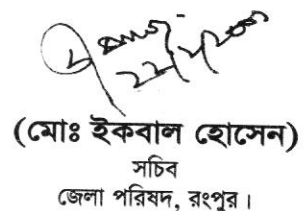 (মোঃ ইকবাল হোসেন)
সচিব
জেলা পরিষদ, রংপুর।